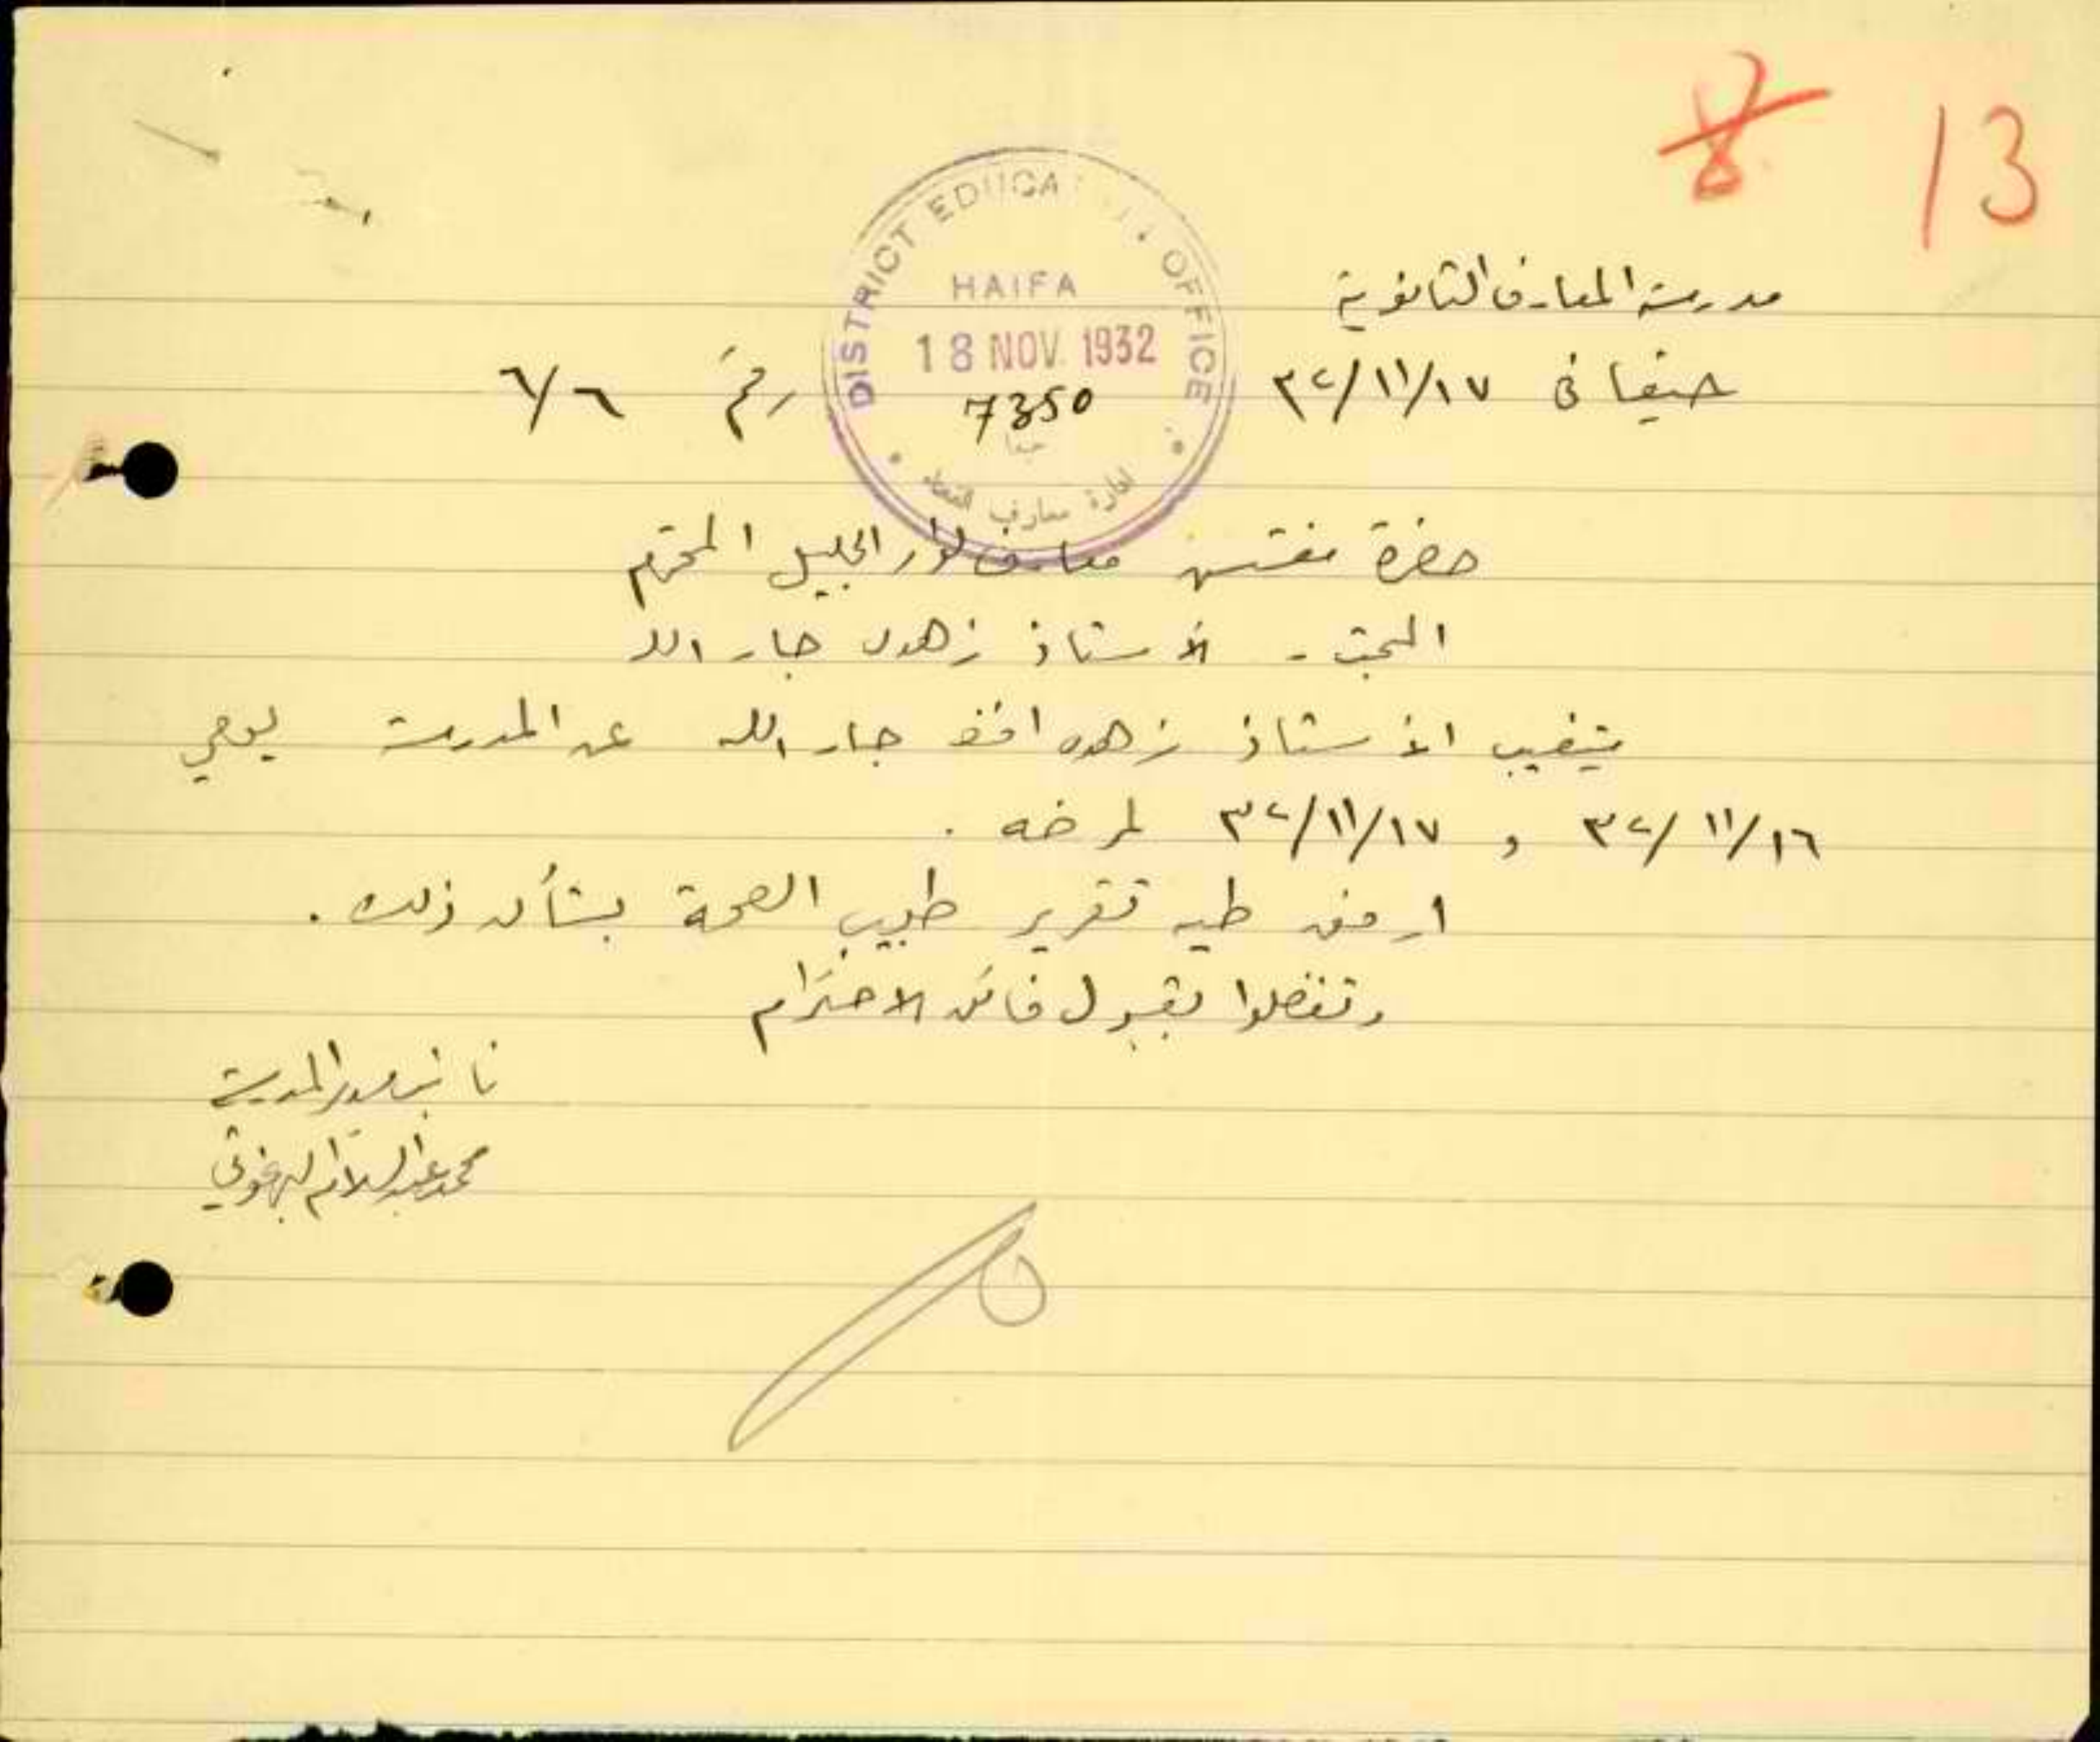 8 13
مدرسة المعارف الثانوية
DISTRICT EDUCA OFFICE
HAIFA
18 NOV. 1932
7350
حيفا
ادارة معارف القضاء
حيفا في ٣٢/١١/١٧ رقم ٦/٦
حضرة مفتش معارف لواء الجليل المحترم
البحث - الاستاذ زهدي جار الله
يتغيب الاستاذ زهدي افندي جار الله عن المدرسة يومي
٣٢/١١/١٦ و ٣٢/١١/١٧ لمرضه .
ارفق طيه تقرير طبيب الصحة بشأن ذلك .
وتفضلوا بقبول فائق الاحترام
نائب مدير المدرسة
محمد عبد السلام البرغوثي